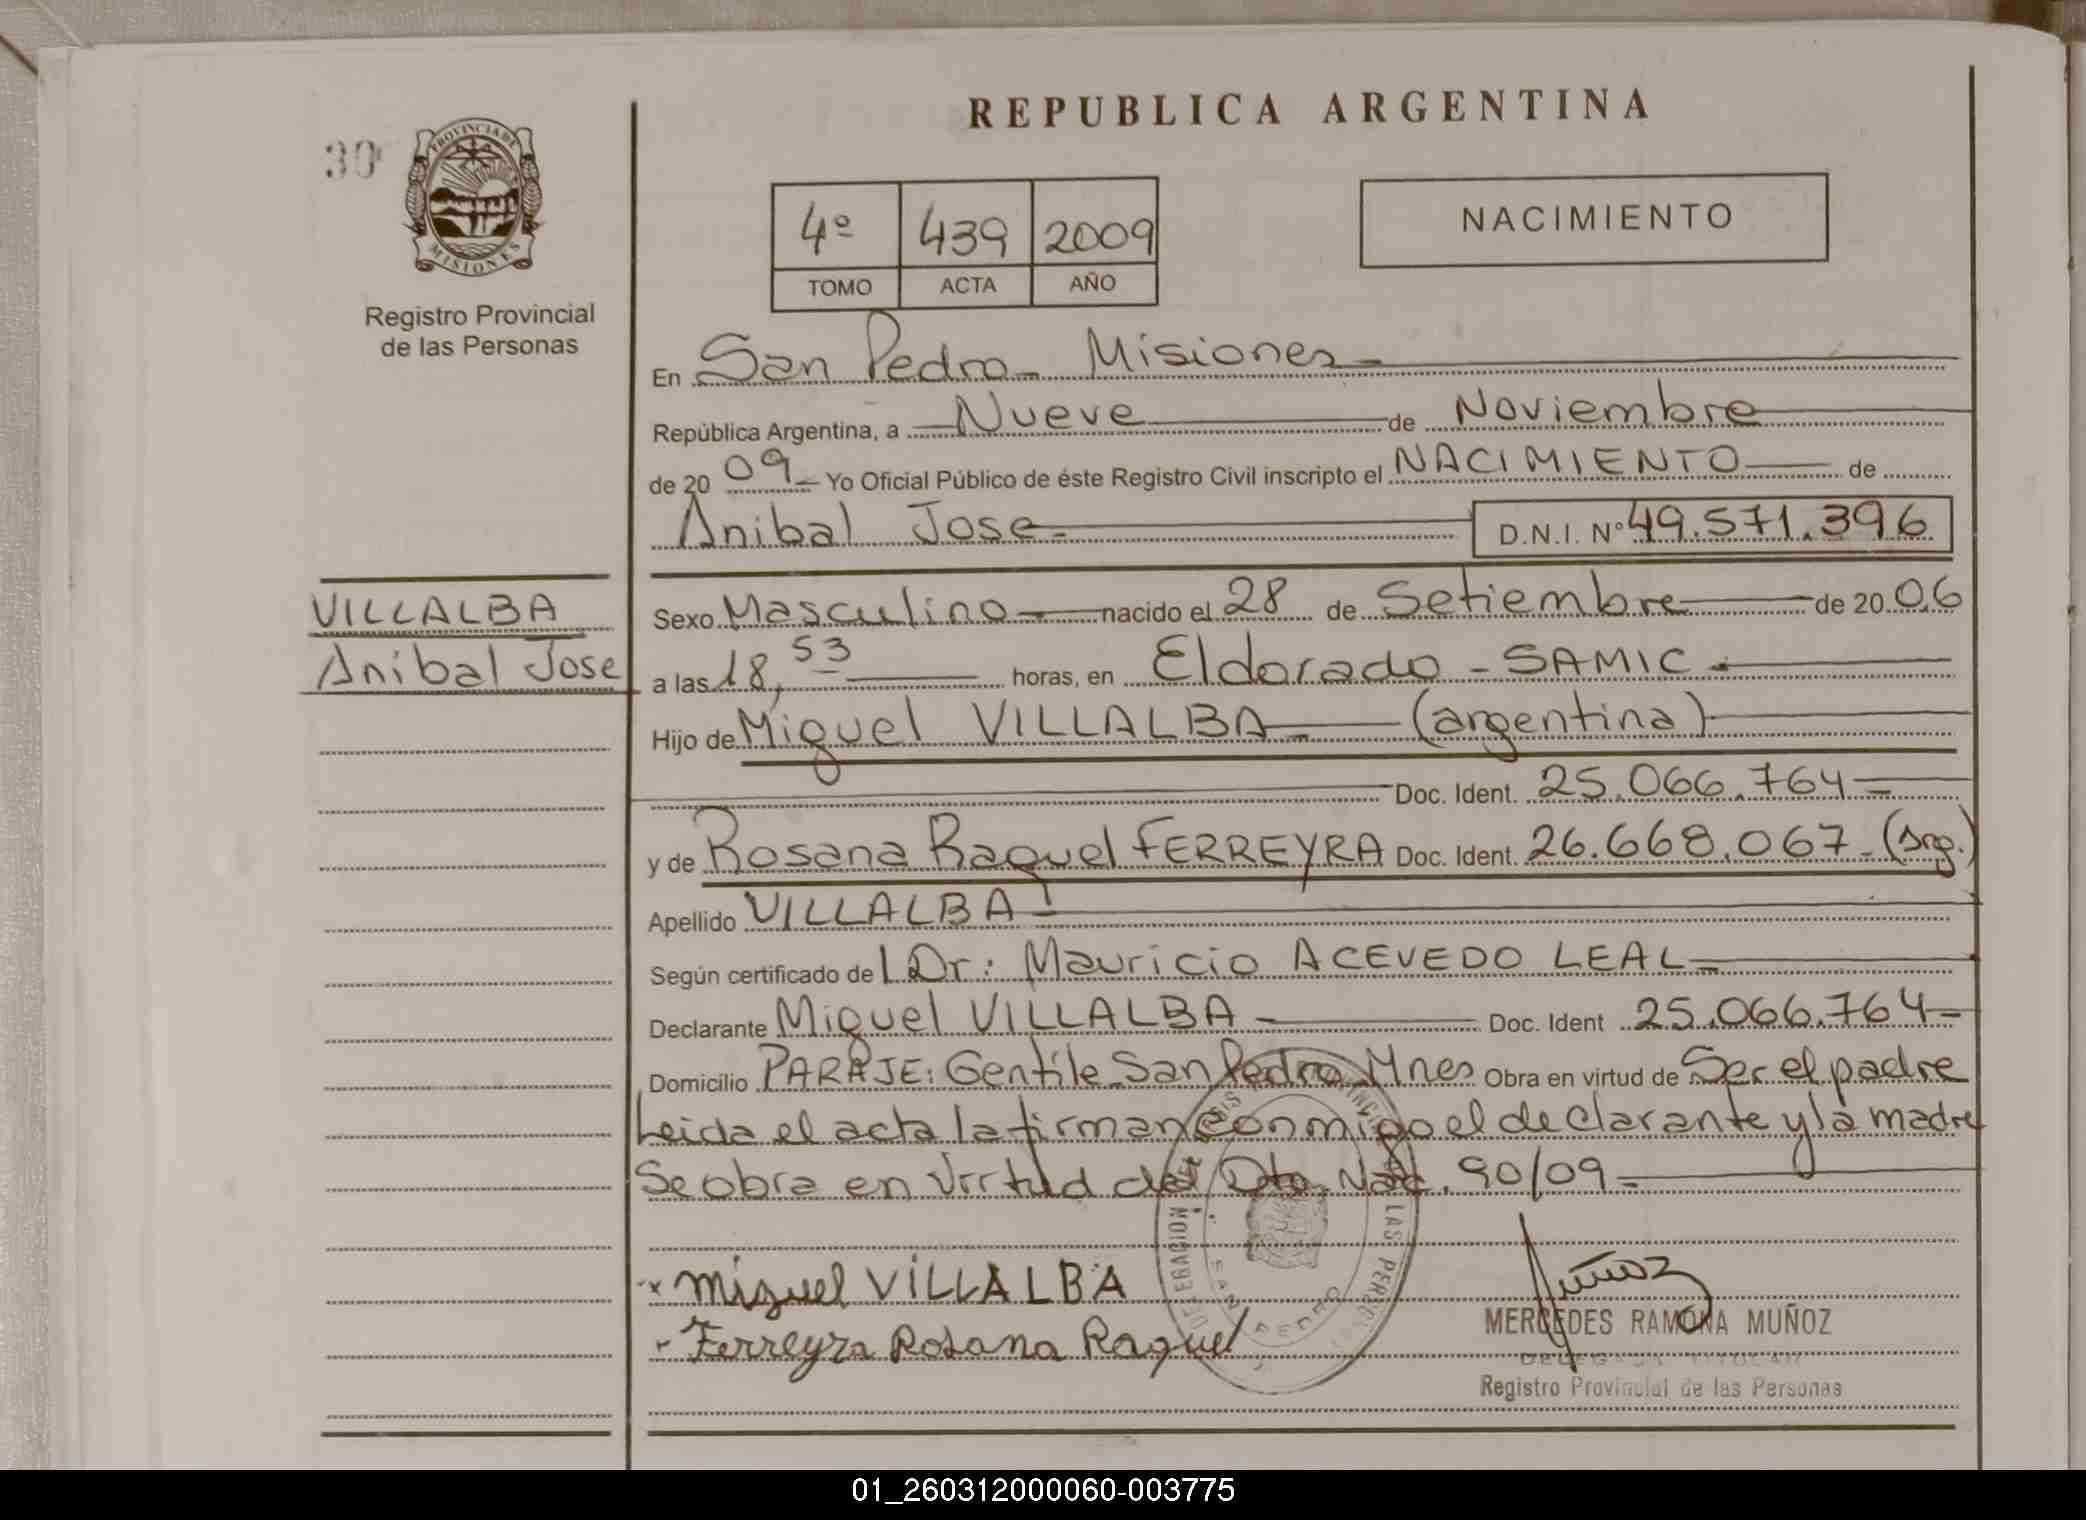 REPUBLICA ARGENTINA
30
PROVINCIA DE
MISIONES
Registro Provincial
de las Personas
4º 439 2009
TOMO ACTA AÑO
NACIMIENTO
En San Pedro - Misiones
República Argentina, a Nueve de Noviembre
de 20 09 Yo Oficial Público de éste Registro Civil inscripto el NACIMIENTO de
Anibal Jose D.N.I. Nº 49.571.396
VILLALBA
Anibal Jose
Sexo Masculino nacido el 28 de Setiembre de 20 06
a las 18,53 horas, en Eldorado - SAMIC
Hijo de Miguel VILLALBA (argentina)
Doc. Ident. 25.066.764
y de Rosana Raquel FERREYRA Doc. Ident. 26.668.067 (Arg.)
Apellido VILLALBA
Según certificado de l Dr: Mauricio ACEVEDO LEAL
Declarante Miguel VILLALBA Doc. Ident 25.066.764
Domicilio PARAJE: Gentile San Pedro Mnes Obra en virtud de Ser el padre
Leida el acta la firman conmigo el declarante y la madre
Se obra en Virtud del Dto. Nac. 90/09
LAS PERSONAS
SAN PEDRO
Miguel VILLALBA
Ferreyra Rosana Raquel
Muñoz
MERCEDES RAMONA MUÑOZ
DELEGADA TITULAR
Registro Provincial de las Personas
01_260312000060-003775